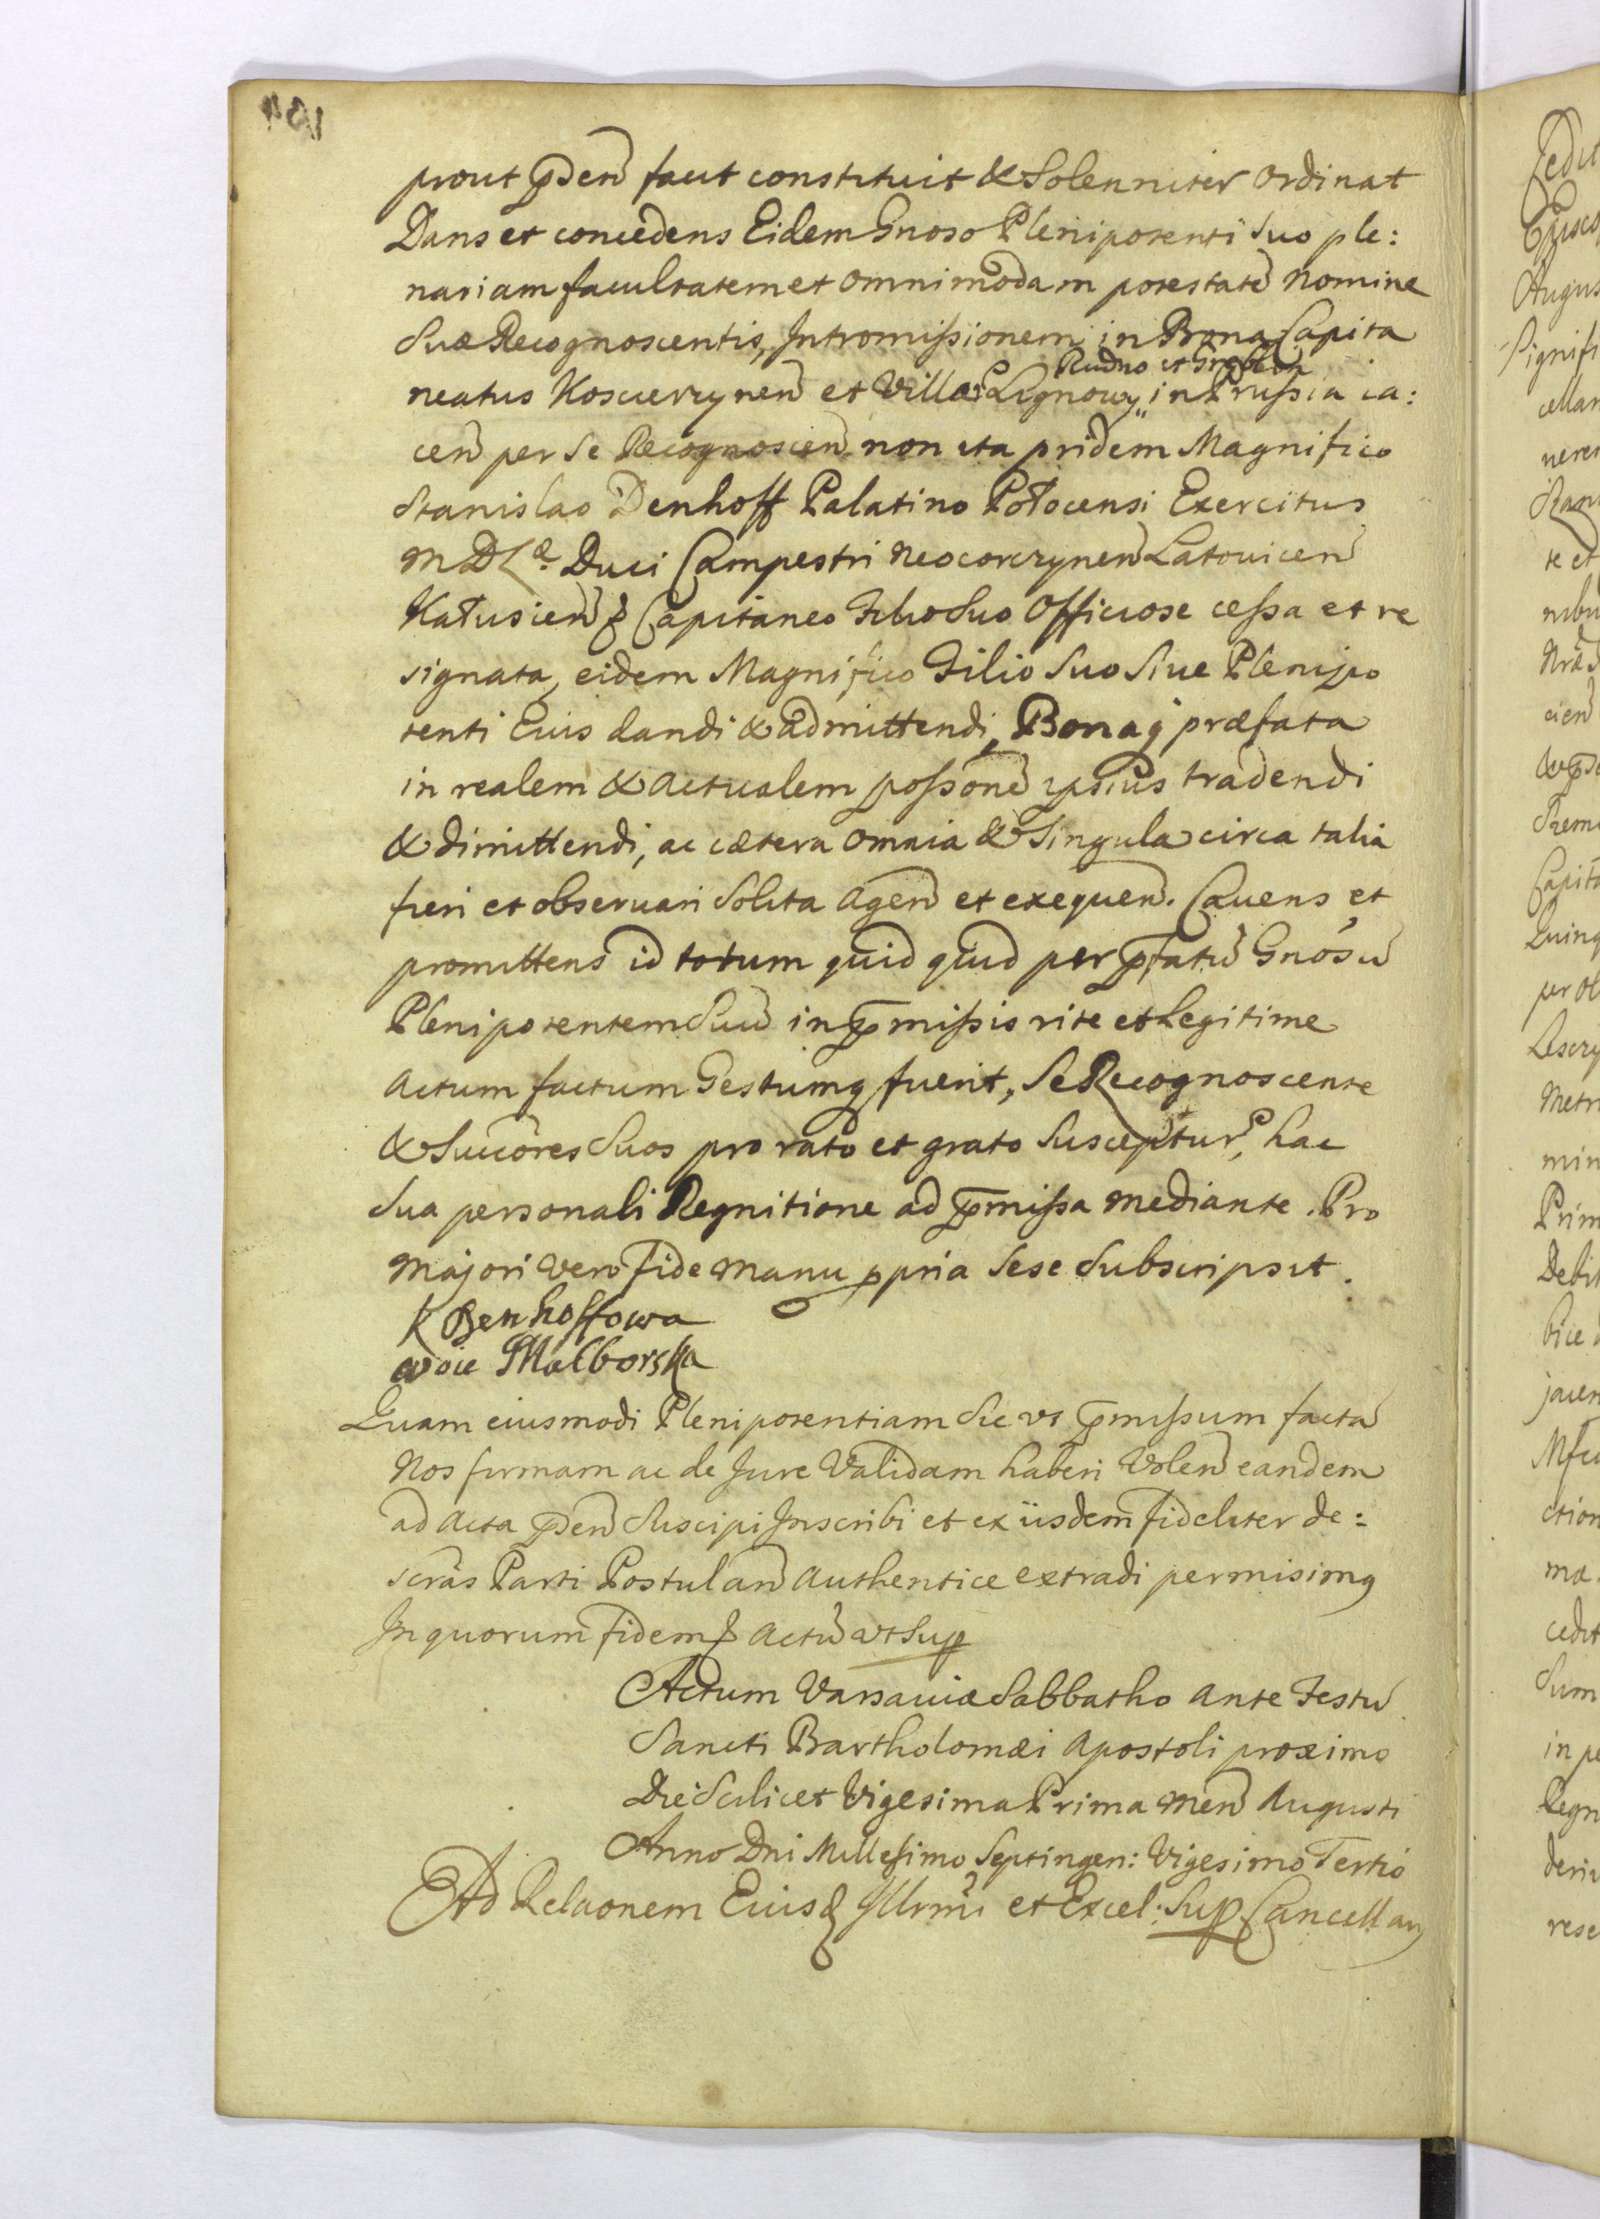 prout p͞nden̄ facit constituit & Solenniter ordinat
Dans et concedens Eidem Gnoso Plenipotenti Suo ple:
nariam facultatem et omnimodam potestatē nomine
Suæ Recognoscentis, Intromissionem in Bona Capita
Rudno et
neatus Koscierzynen̄ et Villas Lignowy in Prussia ia:
cen̄ per Se Recognoscen̄ non ita pridem Magnifico
Stanislao Denhoff Palatino Połocensi Exercitus
M D L Duci Campestri Neocorczynen̄ Latovicen̄
Kałusien̄ Capitaneo Filio Suo Officiose cessa et re
signata, eidem Magnifico Filio Suo Siue Plenipo
tenti Eius dandi & admittendi, Bonaq præfata
in realem & actualem possonē ipsius tradendi
& dimittendi, ac cætera omnia & Singula circa talia
fieri et obseruari Solita agen̄ et exequen̄. Cauens et
promittens id totum quid quid per p͞fatū Gnosū
Plenipotentem Suū in p͞missis rite et Legitime
Actum factum Gestumq fuerit, Se Recognoscente
& Succōres Suos pro rato et grato Suscepitur, hac
Sua personali Regnitione ad p͞missa mediante. Pro
Majori vero fide manu ppria Sese Subscripsit.
K Denhoffowa
woie Malborska
Quam eiusmodi Plenipotentiam Sic vt p͞missum facta
Nos firmam ac de Jure Validam haberi Volen̄ eandem
ad Acta p͞nden̄ Suscipi Inscribi et ex iisdem fideliter de:
scrās Parti Postulan̄ authentice extradi permisimq
In quorum fidem Actū vt Sup
Actum Varsaviæ Sabbatho ante Festū
Sancti Bartholomæi Apostoli proximo
Die Scilicet Vigesima Prima Men̄ Augusti
Anno Dni Millesimo Septingen: Vigesimo Tertio
Ad Relaonem Eiusd Illrmi et Excel. Sup Cancellarij